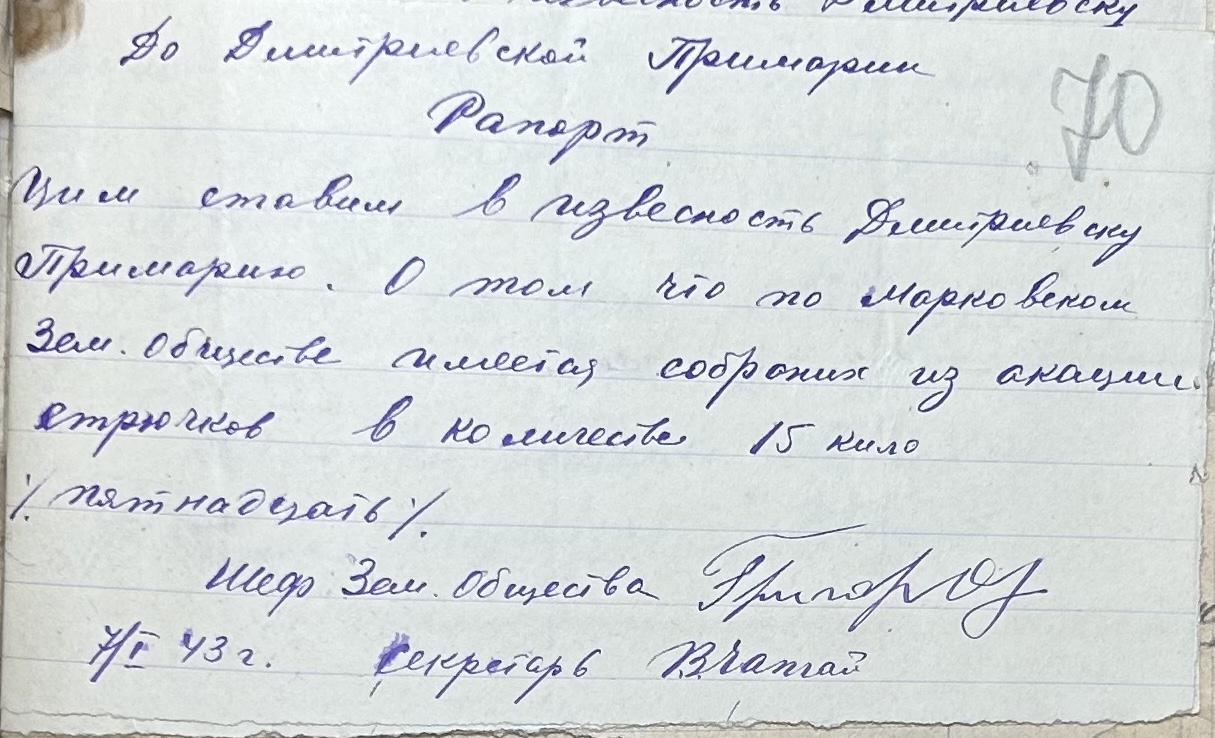 Дмитриевску
До Дмитриевской Примарии
70
Рапорт
Цим ставим в извесность Дмитриевску
Примарию. О том что по Марковском
Зем. обществе имеется собраних из акации
стрючков в количестве 15 кило
/. пятнадцать /.
Шеф Зем. Общества Григор
7/I 43 г. Секретарь